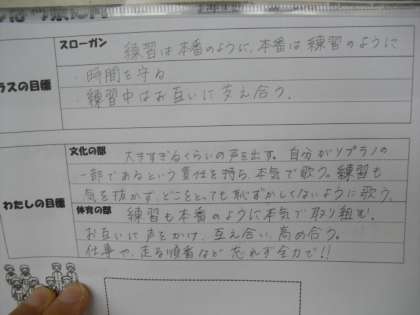 スローガン 練習は本番のように、本番は練習のように
ラスの目標
・時間を守る
・練習中はお互いに支え合う。
わたしの目標
文化の部 大きすぎるくらいの声を出す。自分がソプラノの
一部であるという責任を持ち、本気で歌う。練習も
気を抜かず、どこをとっても恥ずかしくないように歌う。
体育の部 練習も本番のように本気で取り組む。
お互いに声をかけ、支え合い、高め合う。
仕事や、走る順番など忘れず全力で!!